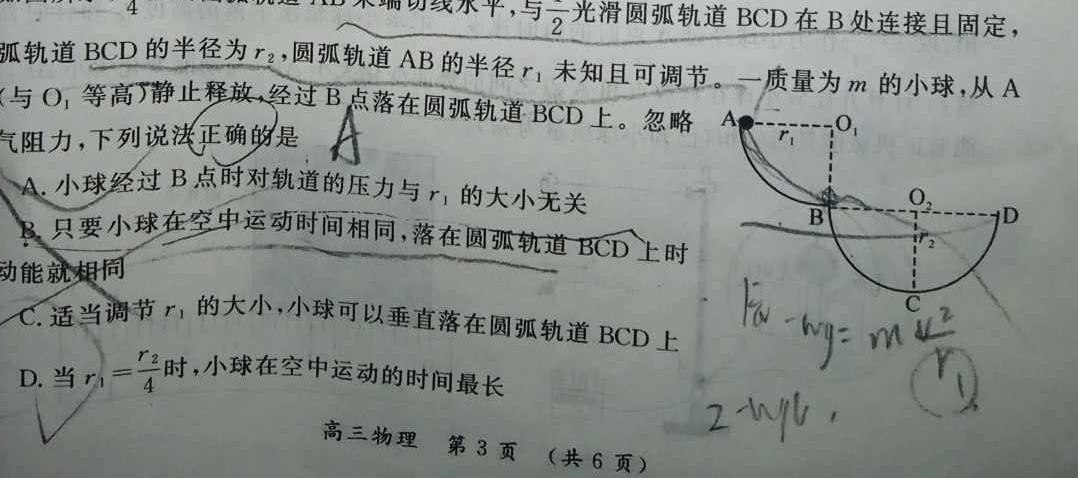 4
AB 末端切线水平,与 1/2 光滑圆弧轨道 BCD 在 B 处连接且固定,
弧轨道 BCD 的半径为 r₂,圆弧轨道 AB 的半径 r₁ 未知且可调节。一质量为 m 的小球,从 A
(与 O₁ 等高)静止释放,经过 B 点落在圆弧轨道 BCD 上。忽略
气阻力,下列说法正确的是
A
A. 小球经过 B 点时对轨道的压力与 r₁ 的大小无关
B. 只要小球在空中运动时间相同,落在圆弧轨道 BCD 上时
动能就相同
C. 适当调节 r₁ 的大小,小球可以垂直落在圆弧轨道 BCD 上
D. 当 r₁=r₂/4时,小球在空中运动的时间最长
A
r₁
O₁
B
O₂
D
r₂
C
-mg=m v²/r₁
高三物理 第 3 页 (共 6 页)